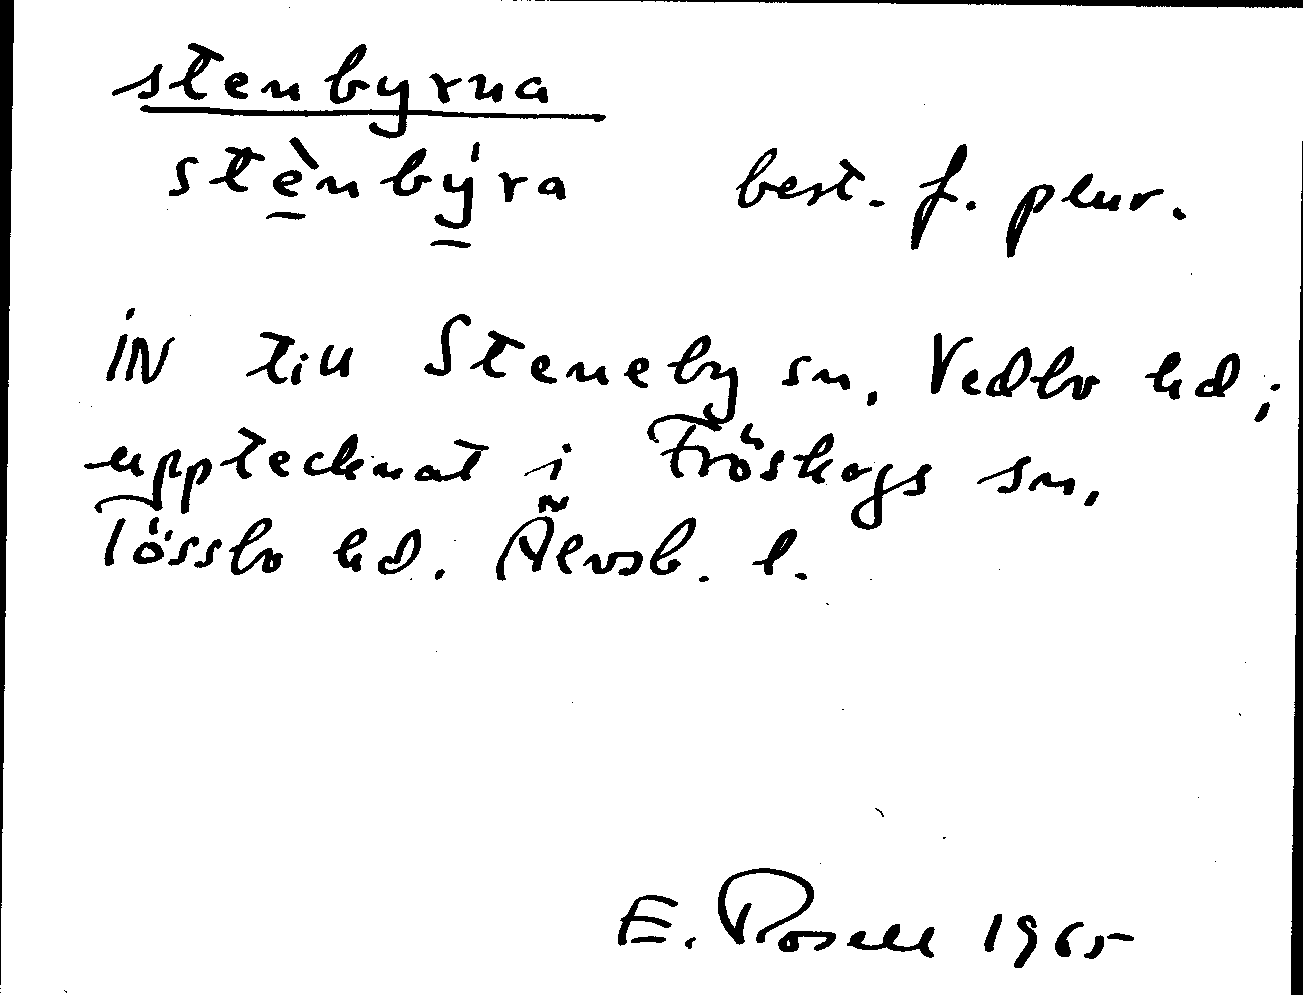 stenbyrna
stènbýra best. f. plur.
iN till Steneby sn, Vedbo hd;
upptecknat i Fröskogs sn,
Tössbo hd. Älvsb. l.
E. Rosell 1965